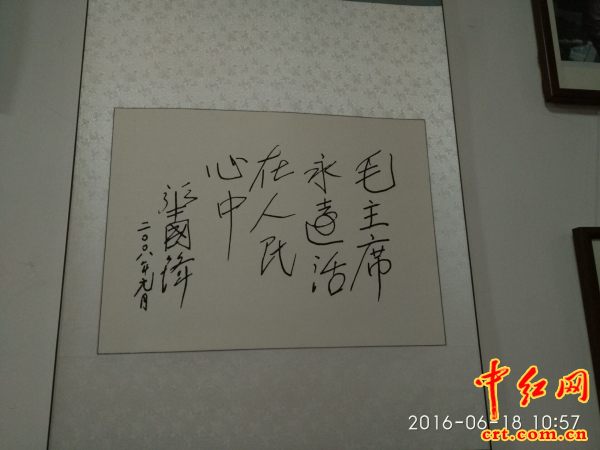 毛主席
永遠活
在人民
心中
國鋒
二〇〇八年元月
中红网
2016-06-18 10:57
crt.com.cn